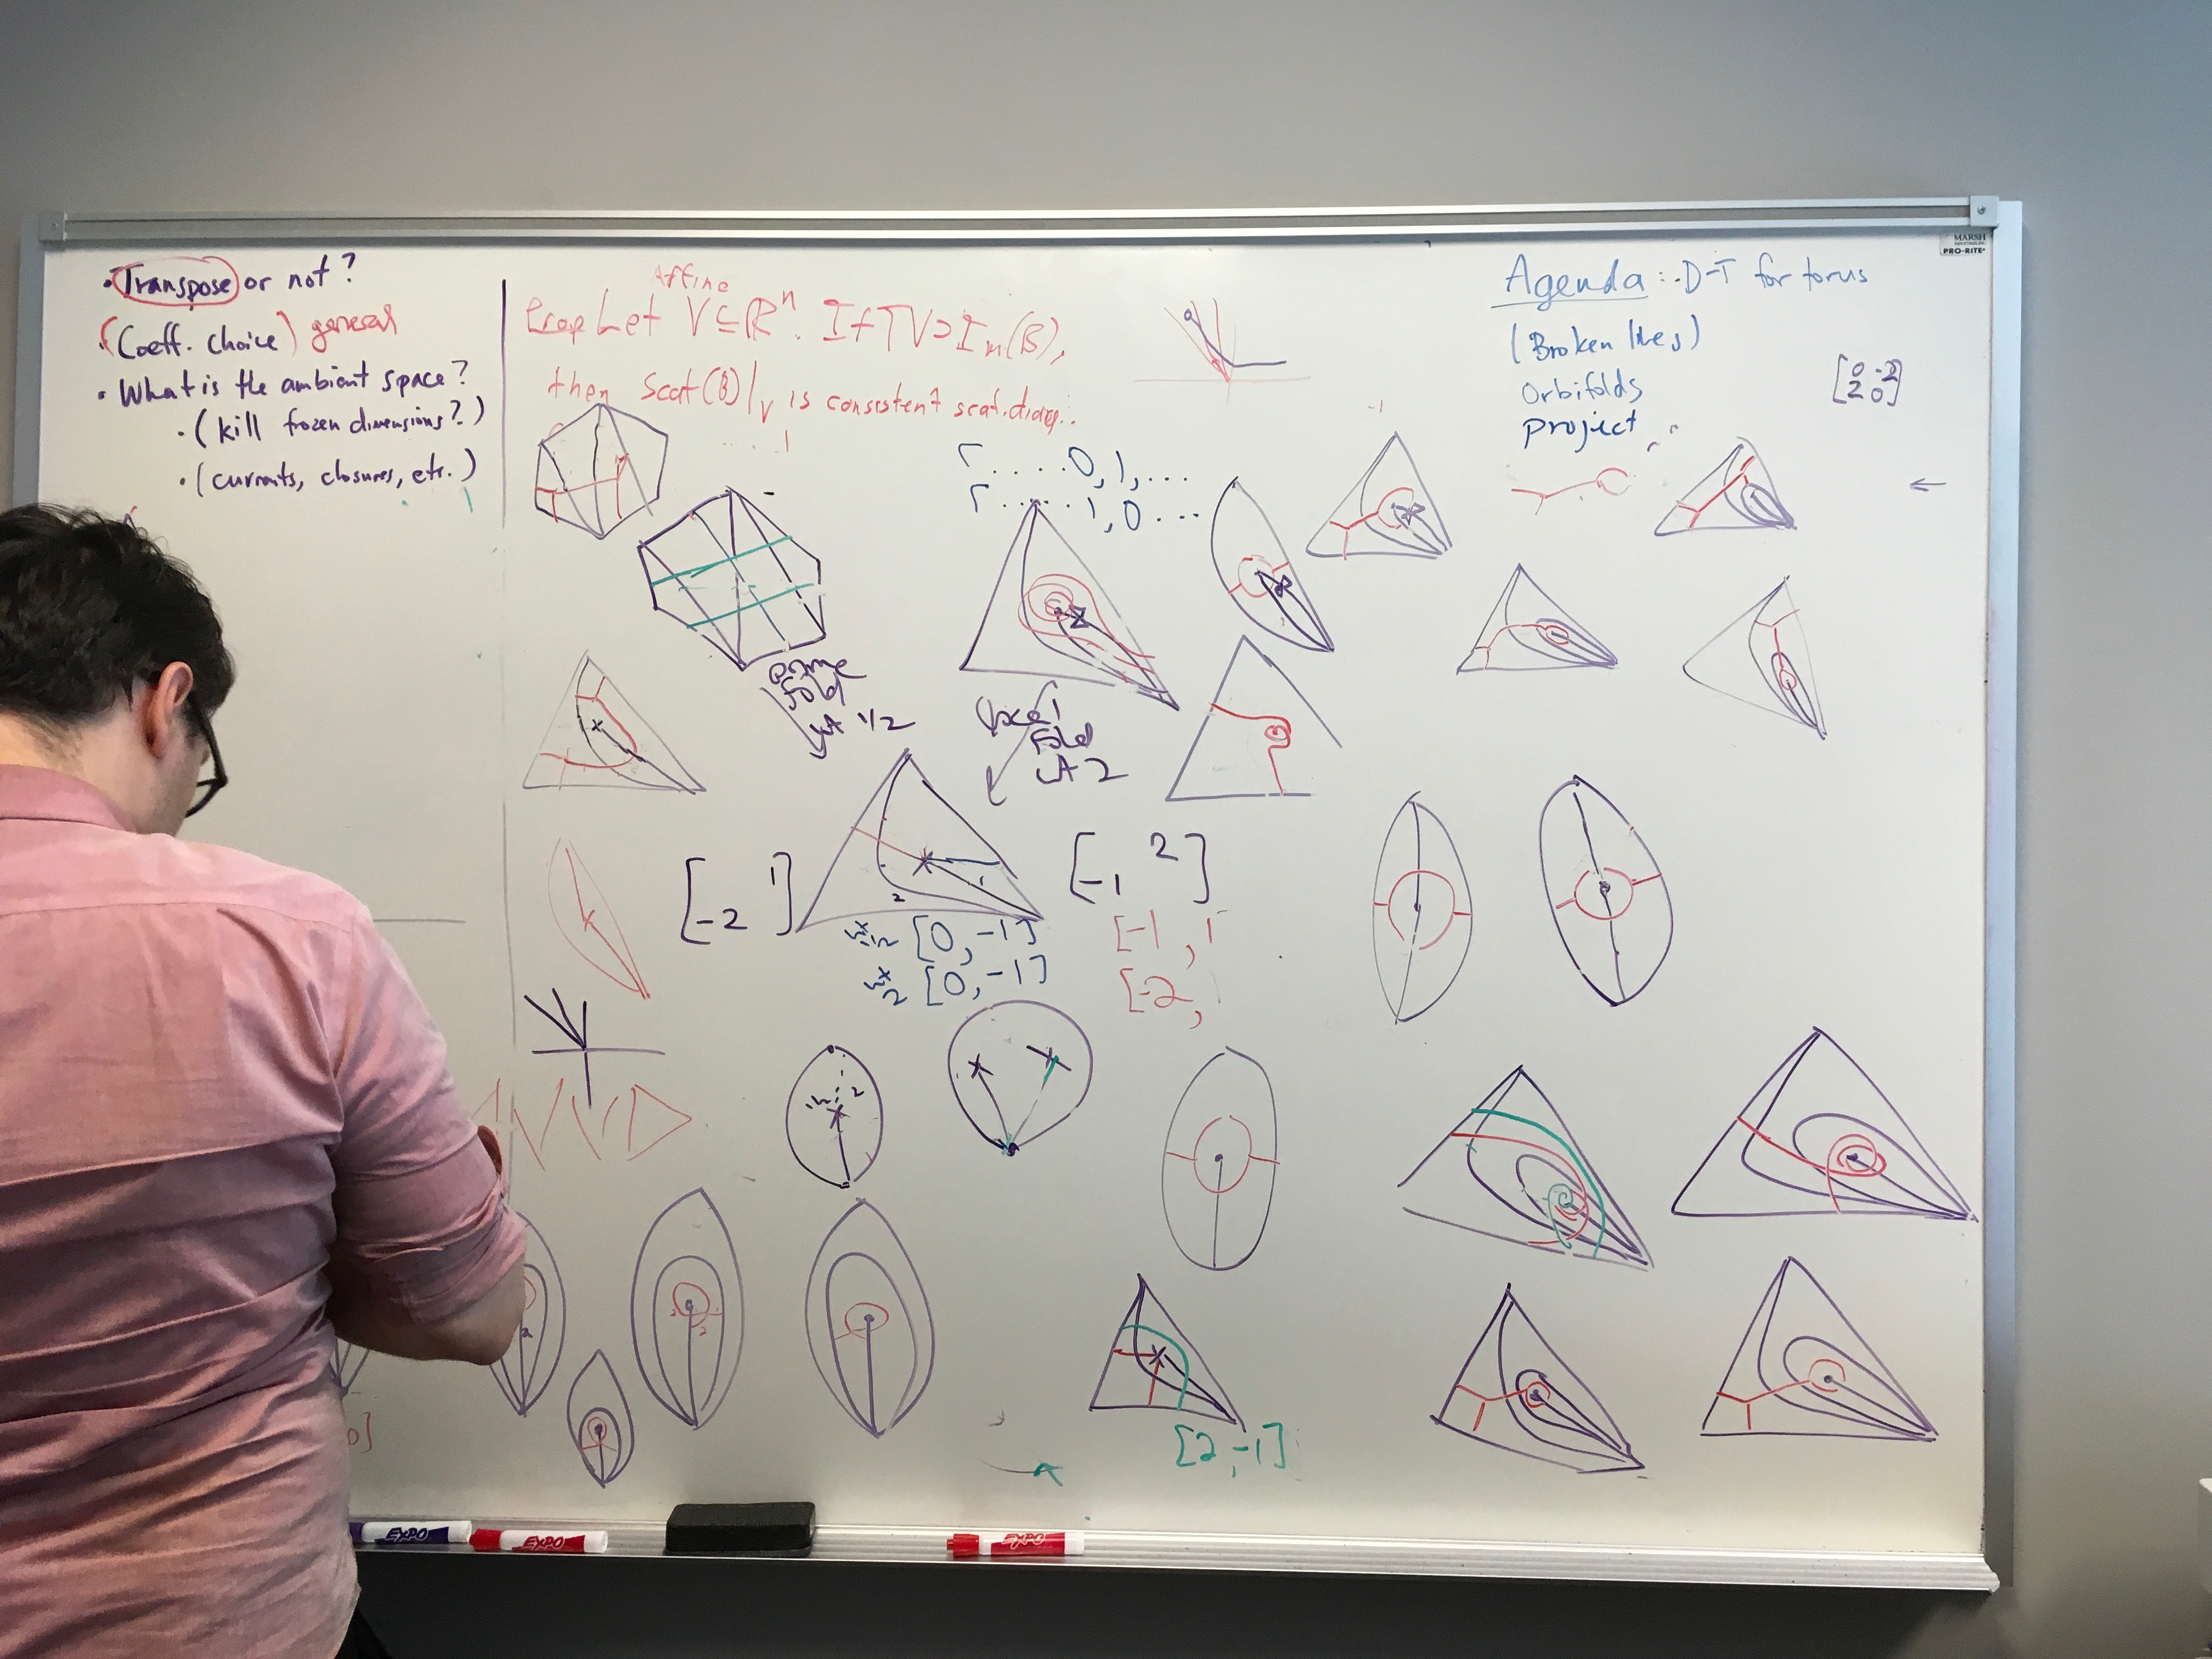 • Transpose or not?
• (Coeff. choice) general
• What is the ambient space?
• (kill frozen dimensions?)
• (currents, closures, etc.)
Affine
Prop Let V ⊆ ℝⁿ. If TV ⊃ Im(B),
then Scat(B)|V is consistent scat. diag..
Agenda: D-T for torus
(Broken lines)
Orbifolds
project
[0 -2
2 0]
MARSH
PRO-RITE
-1
.... 0, 1, ...
.... 1, 0 ...
Fold
wt 1/2
Fold
wt 2
[ 1
-2 ]
[ 2
-1 ]
2
wt 1/2 [0, -1]
wt 2 [0, -1]
[-1, 1
[-2,
2
2
2
[2, -1]
0]
EXPO
EXPO
EXPO